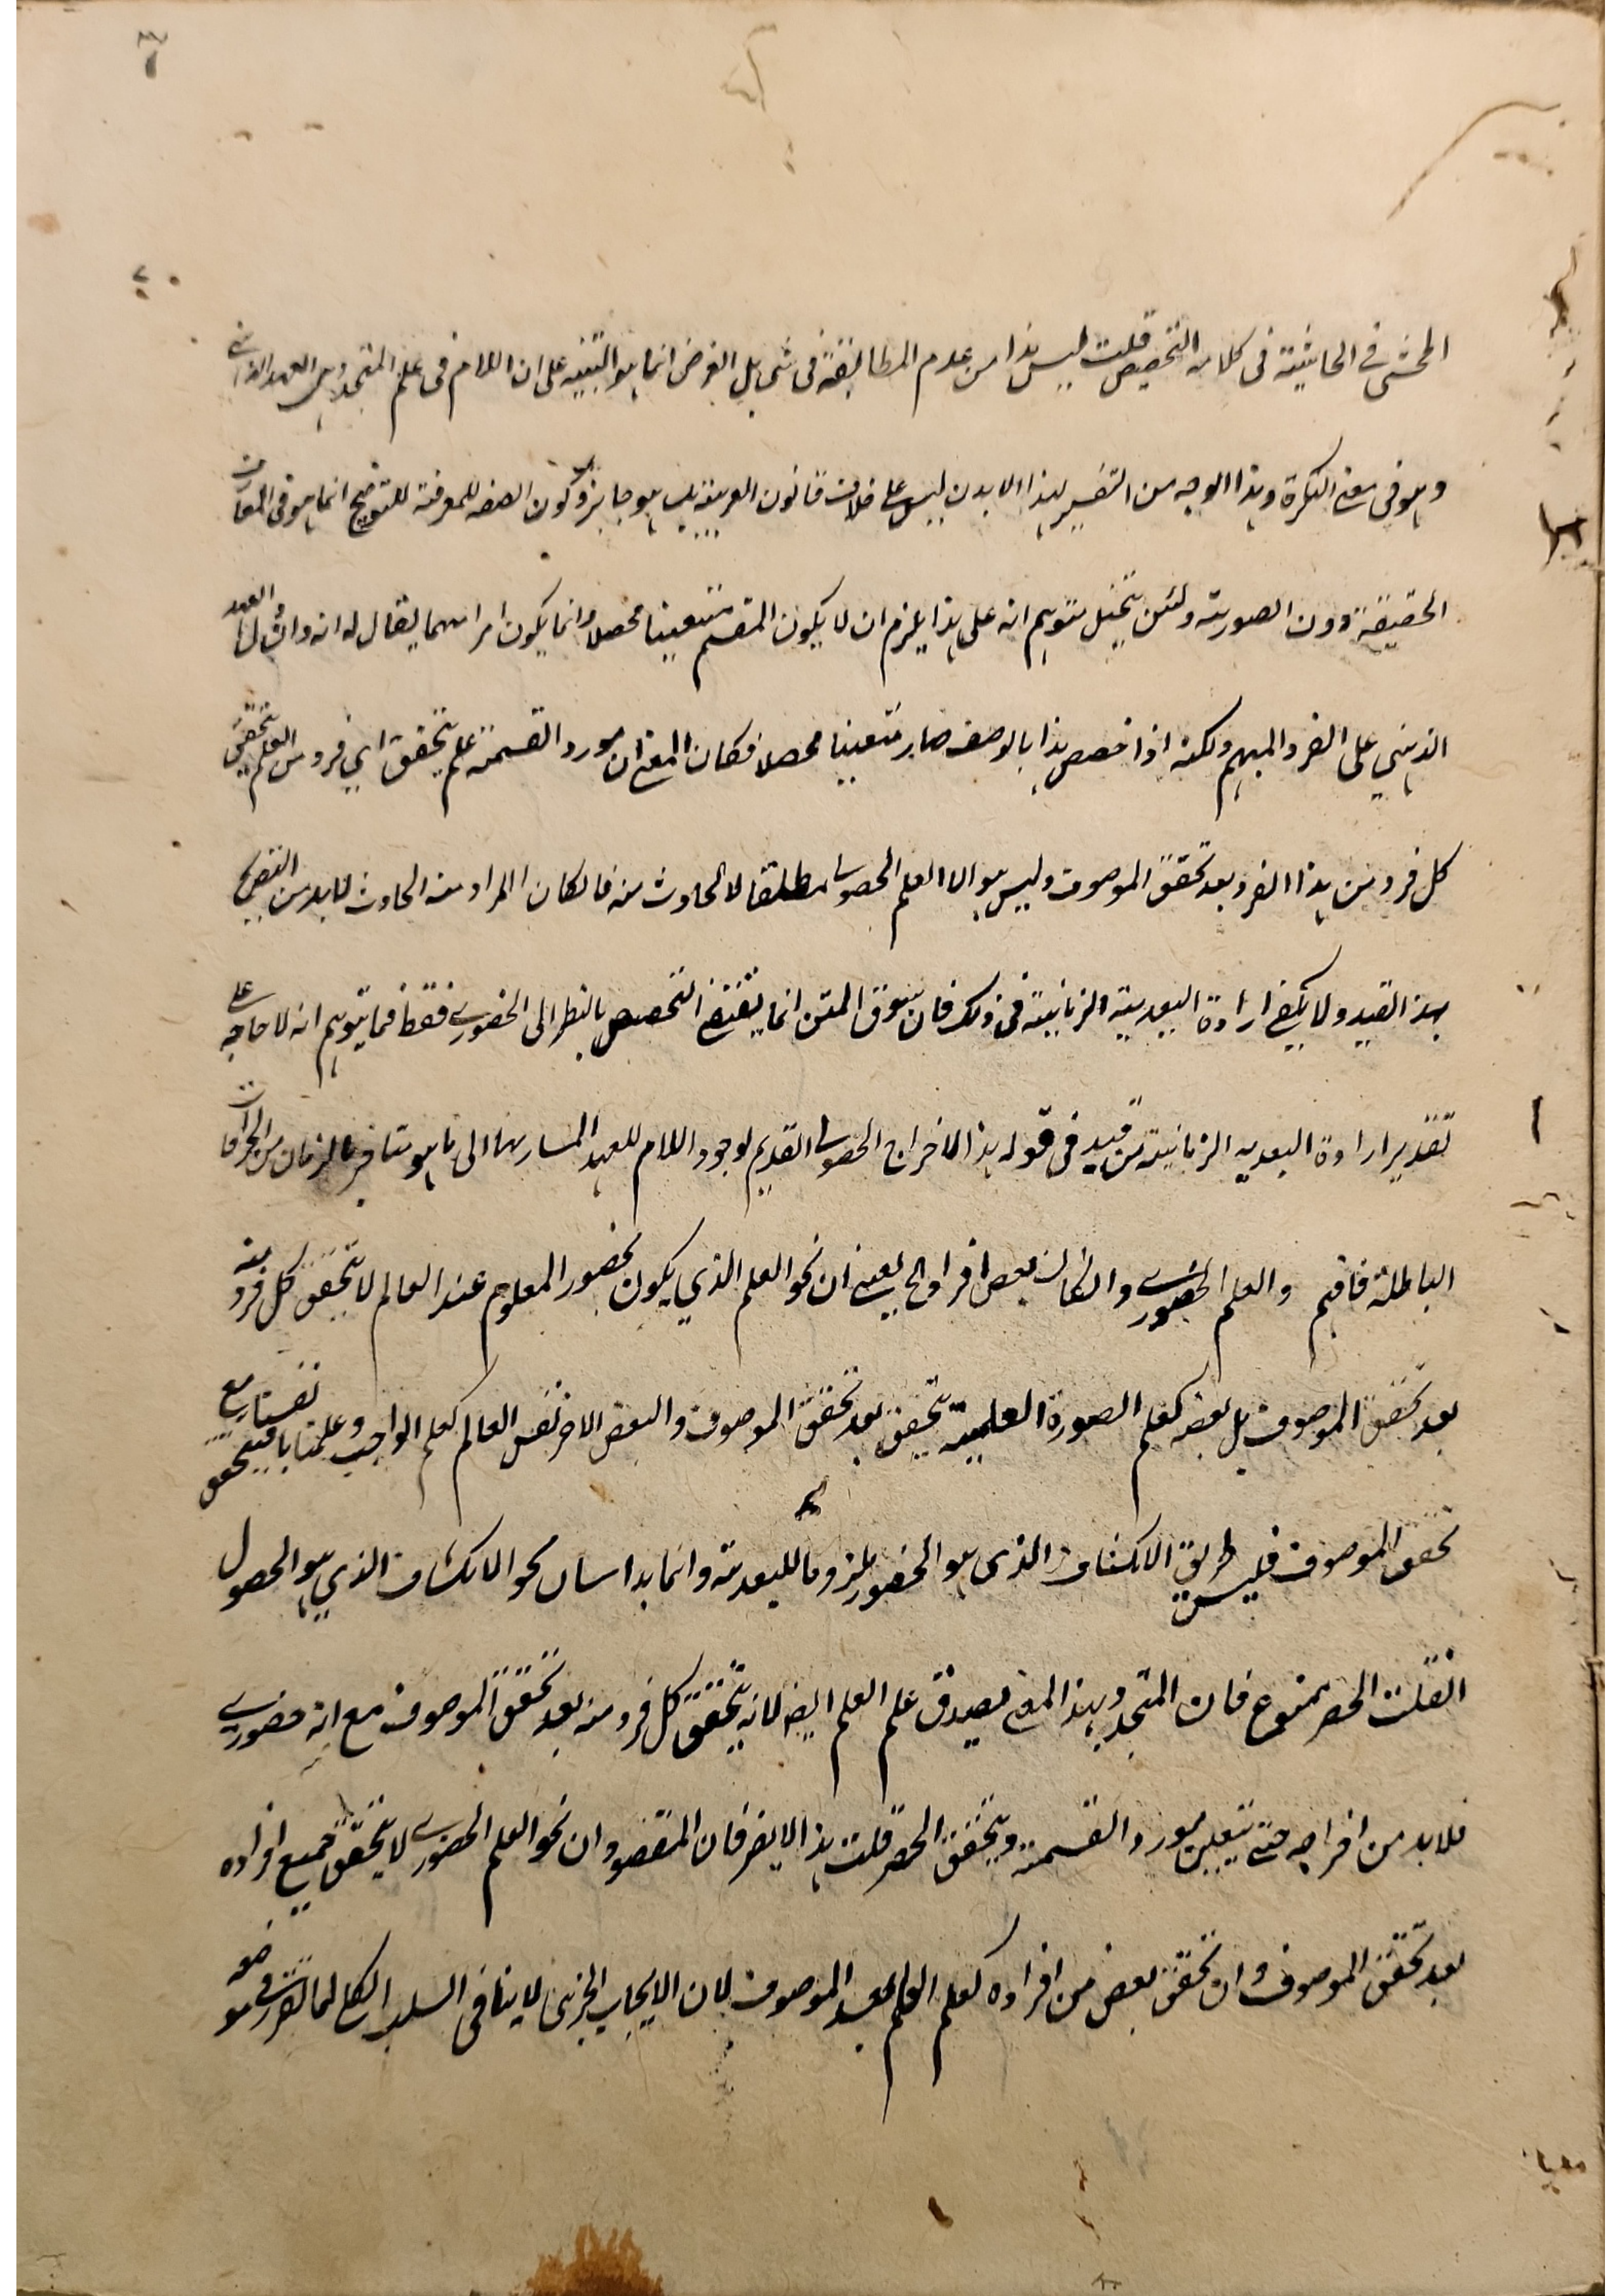 المحشى فى الحاشية فى كلامه التخصيص قلت ليس هذا من عدم المطابقة فى شى بل الغرض انما هو التنبيه على ان اللام فى علم المتجدد هى للعهد الذهنى
وهو فى معنى النكرة وهذا الوجه من التفسير لهذا لا بد ان ليس على خلاف قانون العربية بل هو جايز وكون الصفه للمعرفة للتوضيح انما هو فى المعارف
الحقيقة دون الصورية ولئن تخيل متوهم انه على هذا يلزم ان لا يكون المقسم متعينا محصلا وانما يكون امرا مبهما يقال له انه وان دل العهد
الذهنى على الفرد المبهم ولكنه اذا خصص هذا بالوصف صار متعينا محصلا فكان المعنى ان مورد القسمة علم يتحقق اى فرد من العلم يتحقق
كل فرد من هذا الفرد بعد تحقق الموصوف وليس هو الا العلم الحصولى مطلقا لا الحادث منه فالكان المراد منه الحادث لا بد من التصريح
بهذ القيد ولا يكفى ارادة البعدية الزمانية فى ذلك فان سوق المتن انما يقتضى التخصيص بالنظر الى الحضورى فقط فما يتوهم انه لا حاجه على
تقدير ارادة البعديه الزمانية من قيد فى قوله هذا لاخراج الحصولى القديم لوجود اللام للعهد المشار بها الى ما هو متاخر بالزمان من الخرافات
الباطلة فافهم والعلم الحضورى وان كان بعض افراده الخ يعنى ان نحو العلم الذى يكون بحضور المعلوم عند العالم لا يتحقق كل فرد منه
بعد تحقق الموصوف بل بعضه كعلم الصورة العلمية يتحقق بعد تحقق الموصوف والبعض الاخر نفس العالم كعلم الواجب وعلمنا بانفسنا يتحقق مع
تحقق الموصوف فليس طريق الانكشاف الذى هو الحضور ملزوما للبعدية وانما هذا شان نحو الانكشاف الذى هو الحصول
انقلت الحصر ممنوع فان المتجدد بهذا المعنى يصدق على علم العلم ايضا لانه يتحقق كل فرد منه بعد تحقق الموصوف مع انه حضورى
فلا بد من اخراجه حتى يتعين مورد القسمة ويتحقق الحصر قلت هذا لا يضر فان المقصود ان نحو العلم الحضورى لا يتحقق جميع افراده
بعد تحقق الموصوف وان تحقق بعض من افراده كعلم العلم بعد الموصوف لان الايجاب الجزئى لا ينافى السلب الكلى لما تقرر فى موضعه